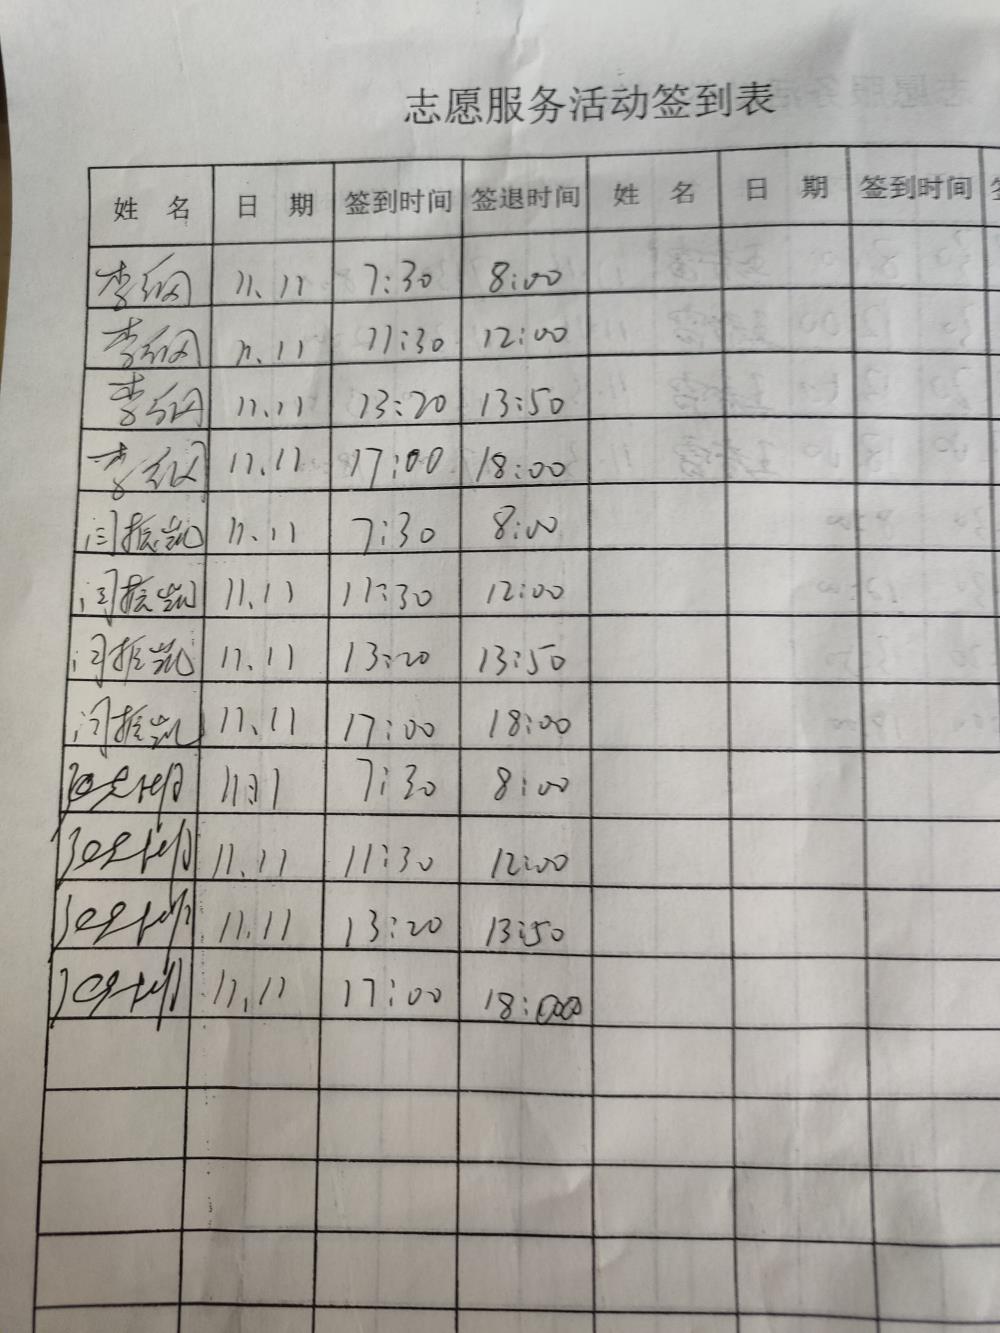 志愿服务活动签到表
姓 名 日 期 签到时间 签退时间 姓 名 日 期 签到时间
李 11.11 7:30 8:00
李 11.11 11:30 12:00
李 11.11 13:20 13:50
李 11.11 17:00 18:00
闫振凯 11.11 7:30 8:00
闫振凯 11.11 11:30 12:00
闫振凯 11.11 13:20 13:50
闫振凯 11.11 17:00 18:00
7:30 8:00
11.11 11:30 12:00
11.11 13:20 13:50
11.11 17:00 18:00